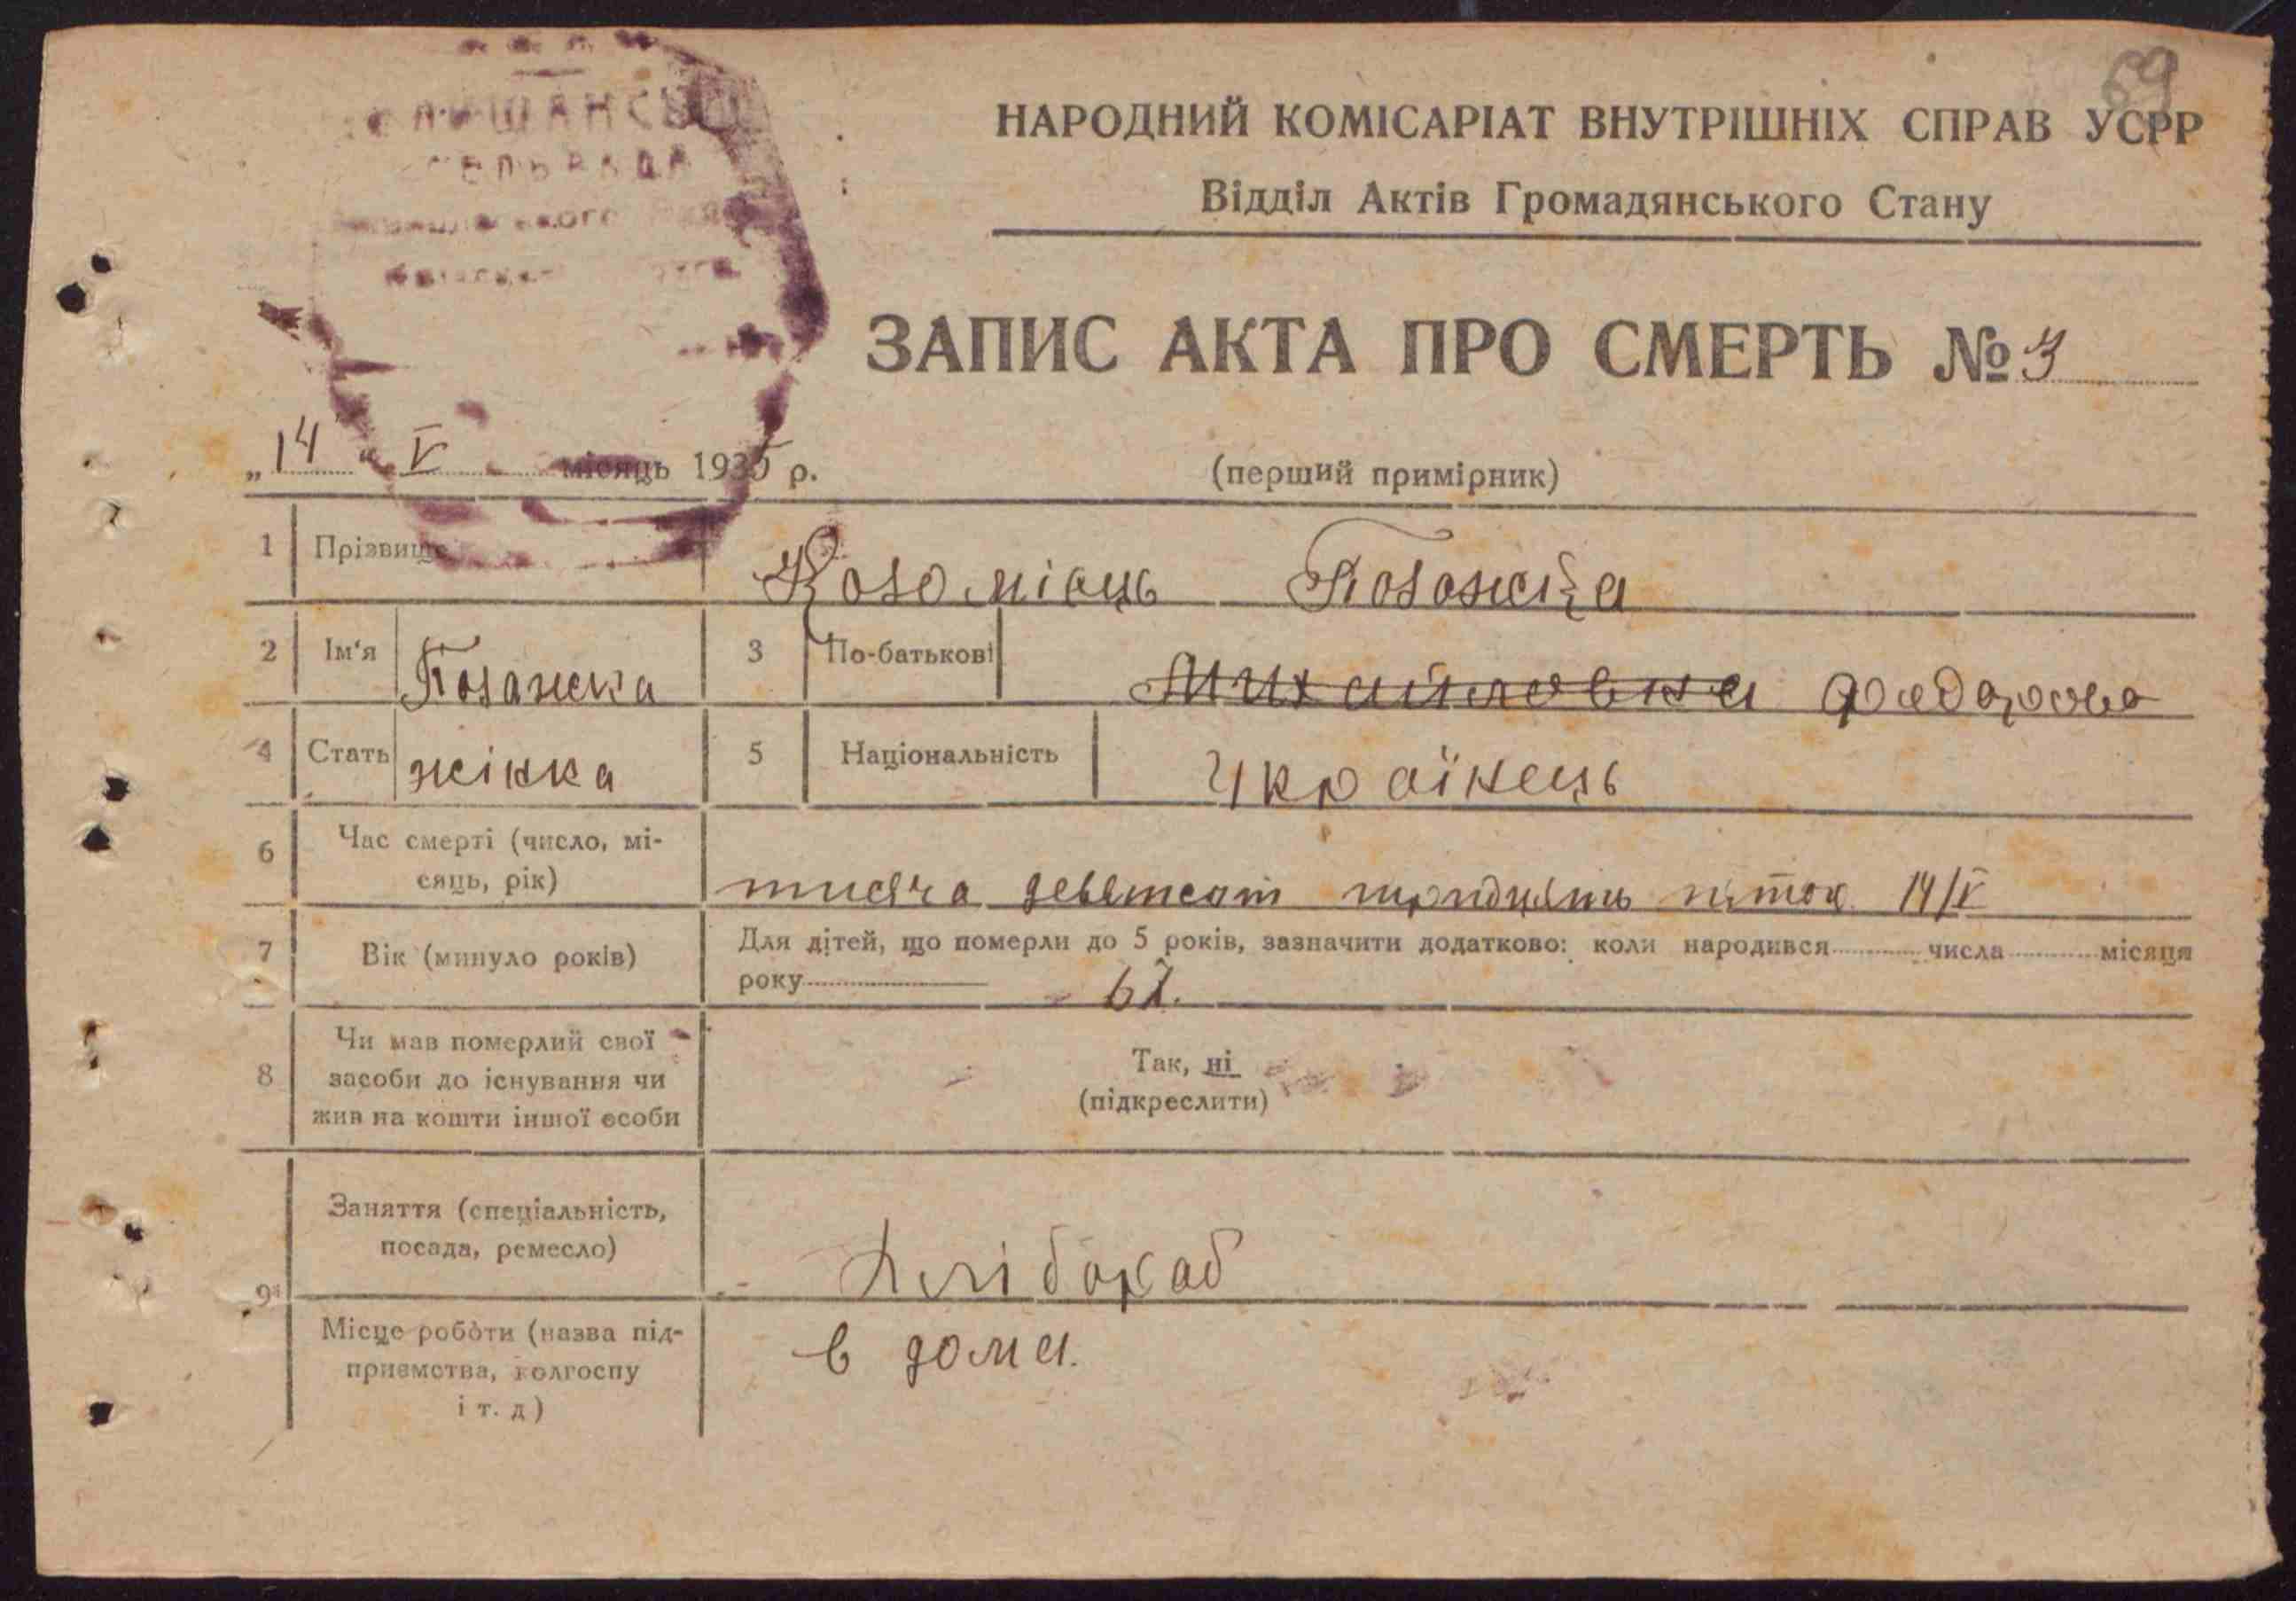 69
НАРОДНИЙ КОМІСАРІАТ ВНУТРІШНІХ СПРАВ УСРР
Відділ Актів Громадянського Стану
ЗАПИС АКТА ПРО СМЕРТЬ № 3
„14“ V місяць 1935 р.
(перший примірник)
1 Прізвище
2 Ім'я 3 По-батькові Михайловна
4 Стать жінка 5 Національність Українець
6 Час смерті (число, мі-
сяць, рік)
тисяча девятсот тридцять 14/V
7 Вік (минуло років) Для дітей, що померли до 5 років, зазначити додатково: коли народився числа місяця
року 67.
8 Чи мав померлий свої
засоби до існування чи
жив на кошти іншої особи
Так, ні
(підкреслити)
9 Заняття (спеціальність,
посада, ремесло)
Хлібораб
Місце роботи (назва під-
приємства, колгоспу
і т. д)
в дома.